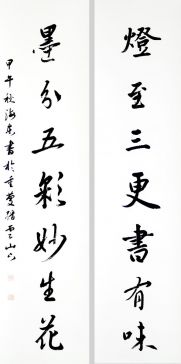 燈至三更書有味
墨分五彩妙生花
甲午秋海
書於